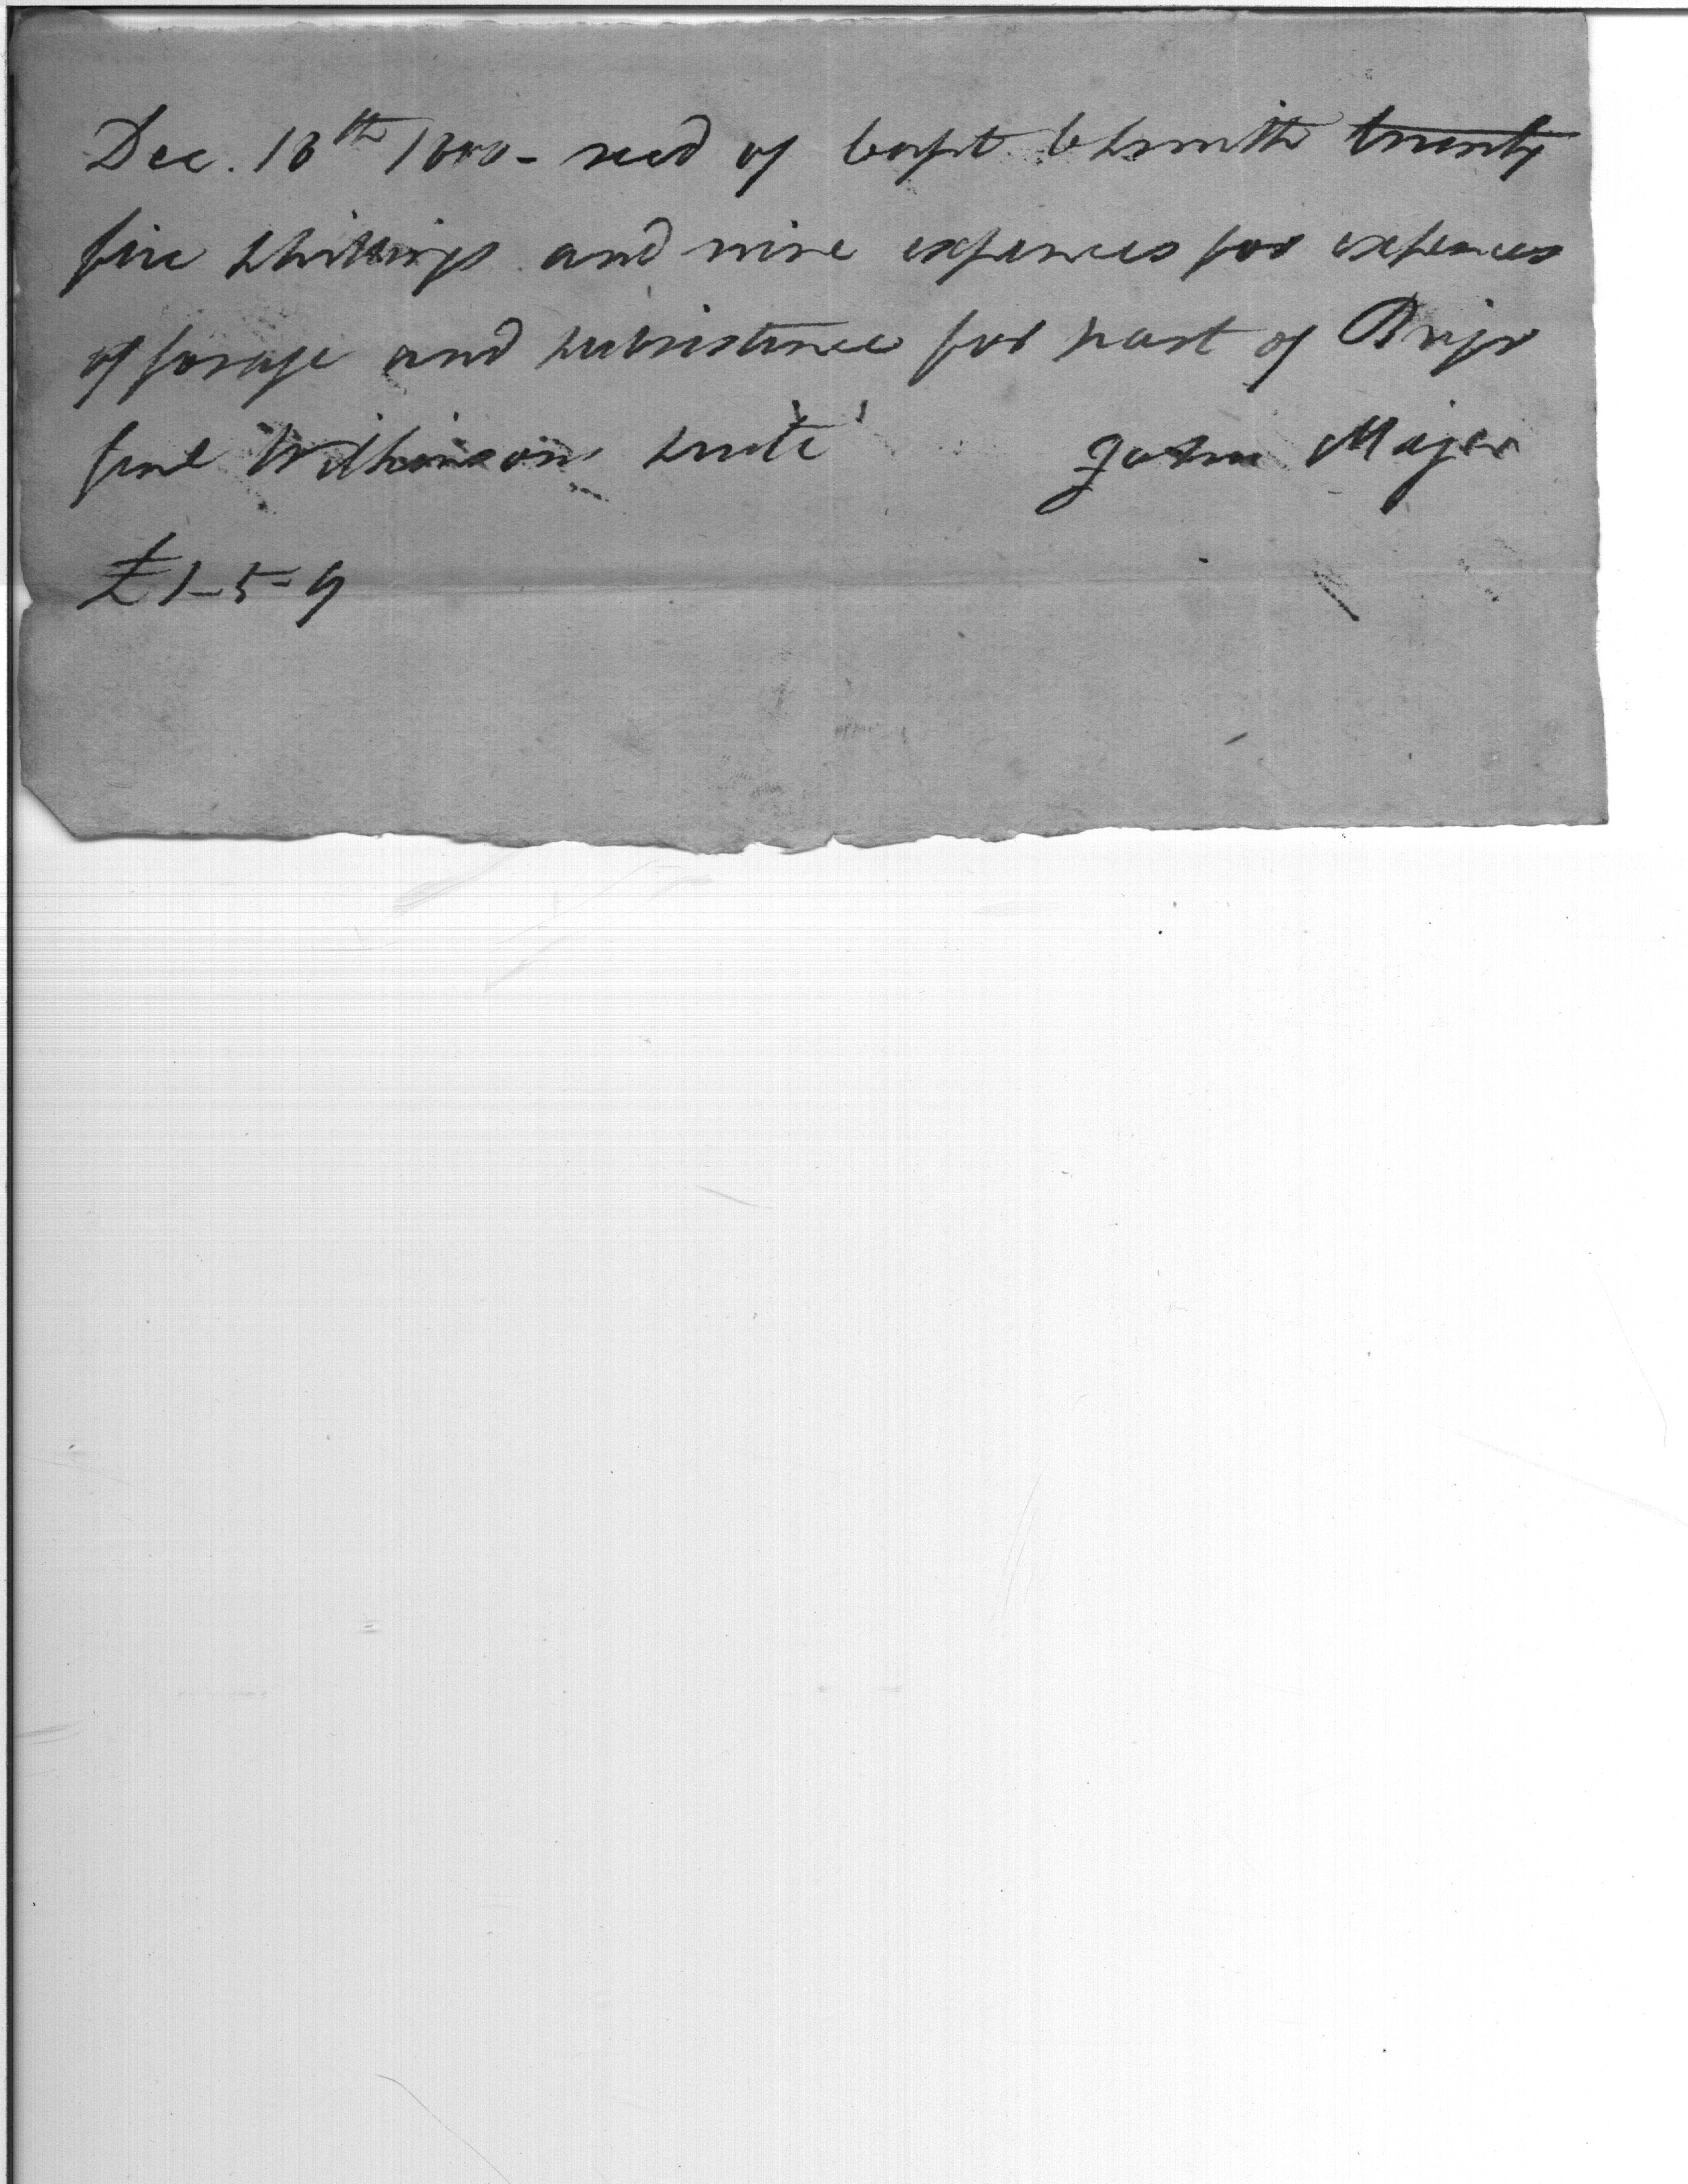 Dec. 18th 1800 - recd of Capt C Smith twenty
five shillings and nine expences for expences
of forage and subsistance for part of Brigr
Genl Wilkinsons suite John Major
£1-5-9